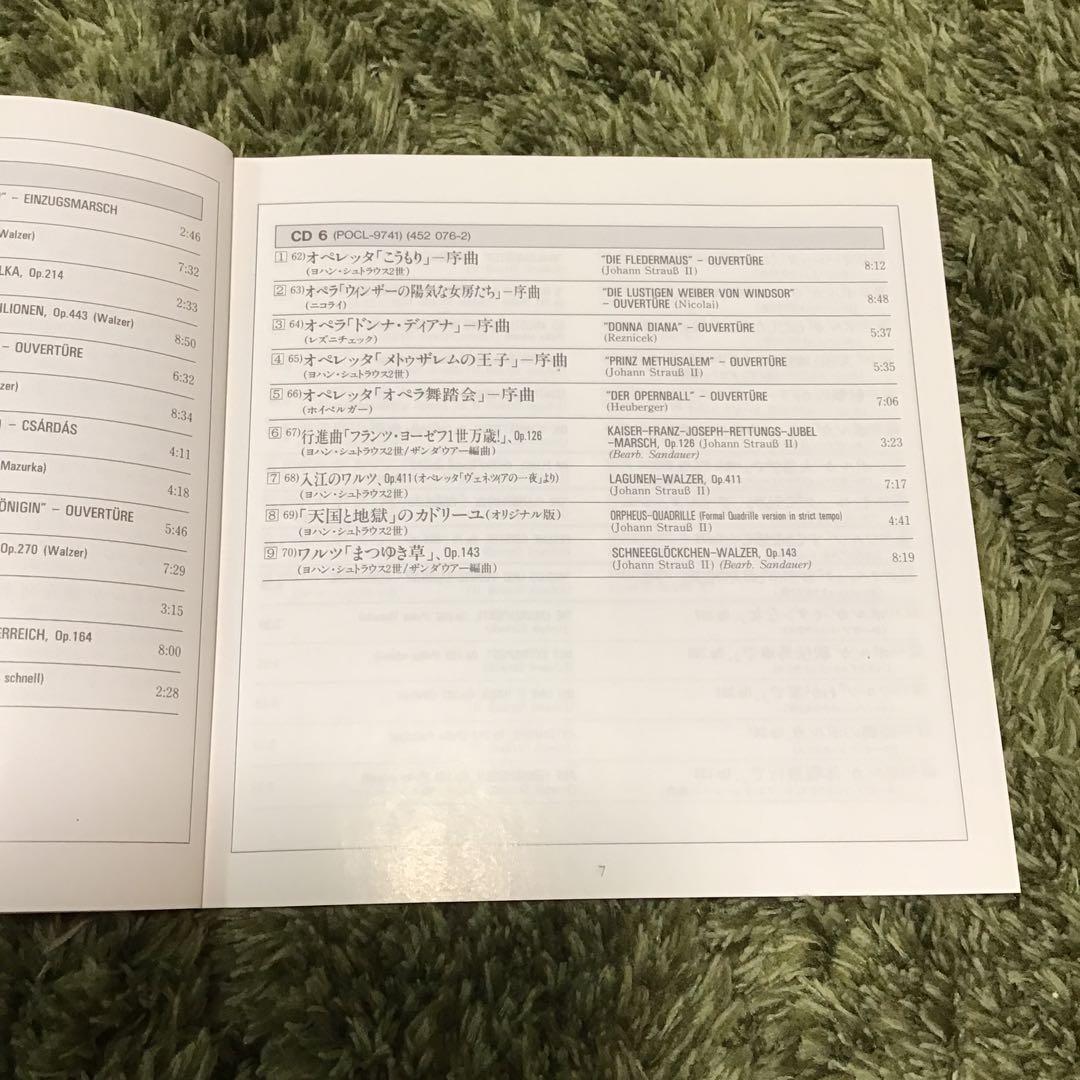 " – EINZUGSMARSCH
2:46
Walzer)
7:32
LKA, Op.214
2:33
ILIONEN, Op.443 (Walzer)
8:50
– OUVERTÜRE
6:32
zer)
8:34
– CSÁRDÁS
4:11
Mazurka)
4:18
ÖNIGIN" – OUVERTÜRE
5:46
Op.270 (Walzer)
7:29
3:15
ERREICH, Op.164
8:00
schnell)
2:28
CD 6 (POCL-9741) (452 076-2)
1 62)オペレッタ「こうもり」―序曲 "DIE FLEDERMAUS" – OUVERTÜRE 8:12
(ヨハン・シュトラウス2世) (Johann Strauß II)
2 63)オペラ「ウィンザーの陽気な女房たち」―序曲 "DIE LUSTIGEN WEIBER VON WINDSOR" 8:48
(ニコライ) – OUVERTÜRE (Nicolai)
3 64)オペラ「ドンナ・ディアナ」―序曲 "DONNA DIANA" – OUVERTÜRE 5:37
(レズニチェック) (Reznicek)
4 65)オペレッタ「メトゥザレムの王子」―序曲 "PRINZ METHUSALEM" – OUVERTÜRE 5:35
(ヨハン・シュトラウス2世) (Johann Strauß II)
5 66)オペレッタ「オペラ舞踏会」―序曲 "DER OPERNBALL" – OUVERTÜRE 7:06
(ホイベルガー) (Heuberger)
6 67)行進曲「フランツ・ヨーゼフ1世万歳!」、Op.126 KAISER–FRANZ–JOSEPH–RETTUNGS–JUBEL 3:23
(ヨハン・シュトラウス2世/ザンダウアー編曲) –MARSCH, Op.126 (Johann Strauß II)
(Bearb. Sandauer)
7 68)入江のワルツ、Op.411(オペレッタ「ヴェネツィアの一夜」より) LAGUNEN–WALZER, Op.411 7:17
(ヨハン・シュトラウス2世) (Johann Strauß II)
8 69)「天国と地獄」のカドリーユ(オリジナル版) ORPHEUS-QUADRILLE (Formal Quadrille version in strict tempo) 4:41
(ヨハン・シュトラウス2世) (Johann Strauß II)
9 70)ワルツ「まつゆき草」、Op.143 SCHNEEGLÖCKCHEN–WALZER, Op.143 8:19
(ヨハン・シュトラウス2世/ザンダウアー編曲) (Johann Strauß II) (Bearb. Sandauer)
7